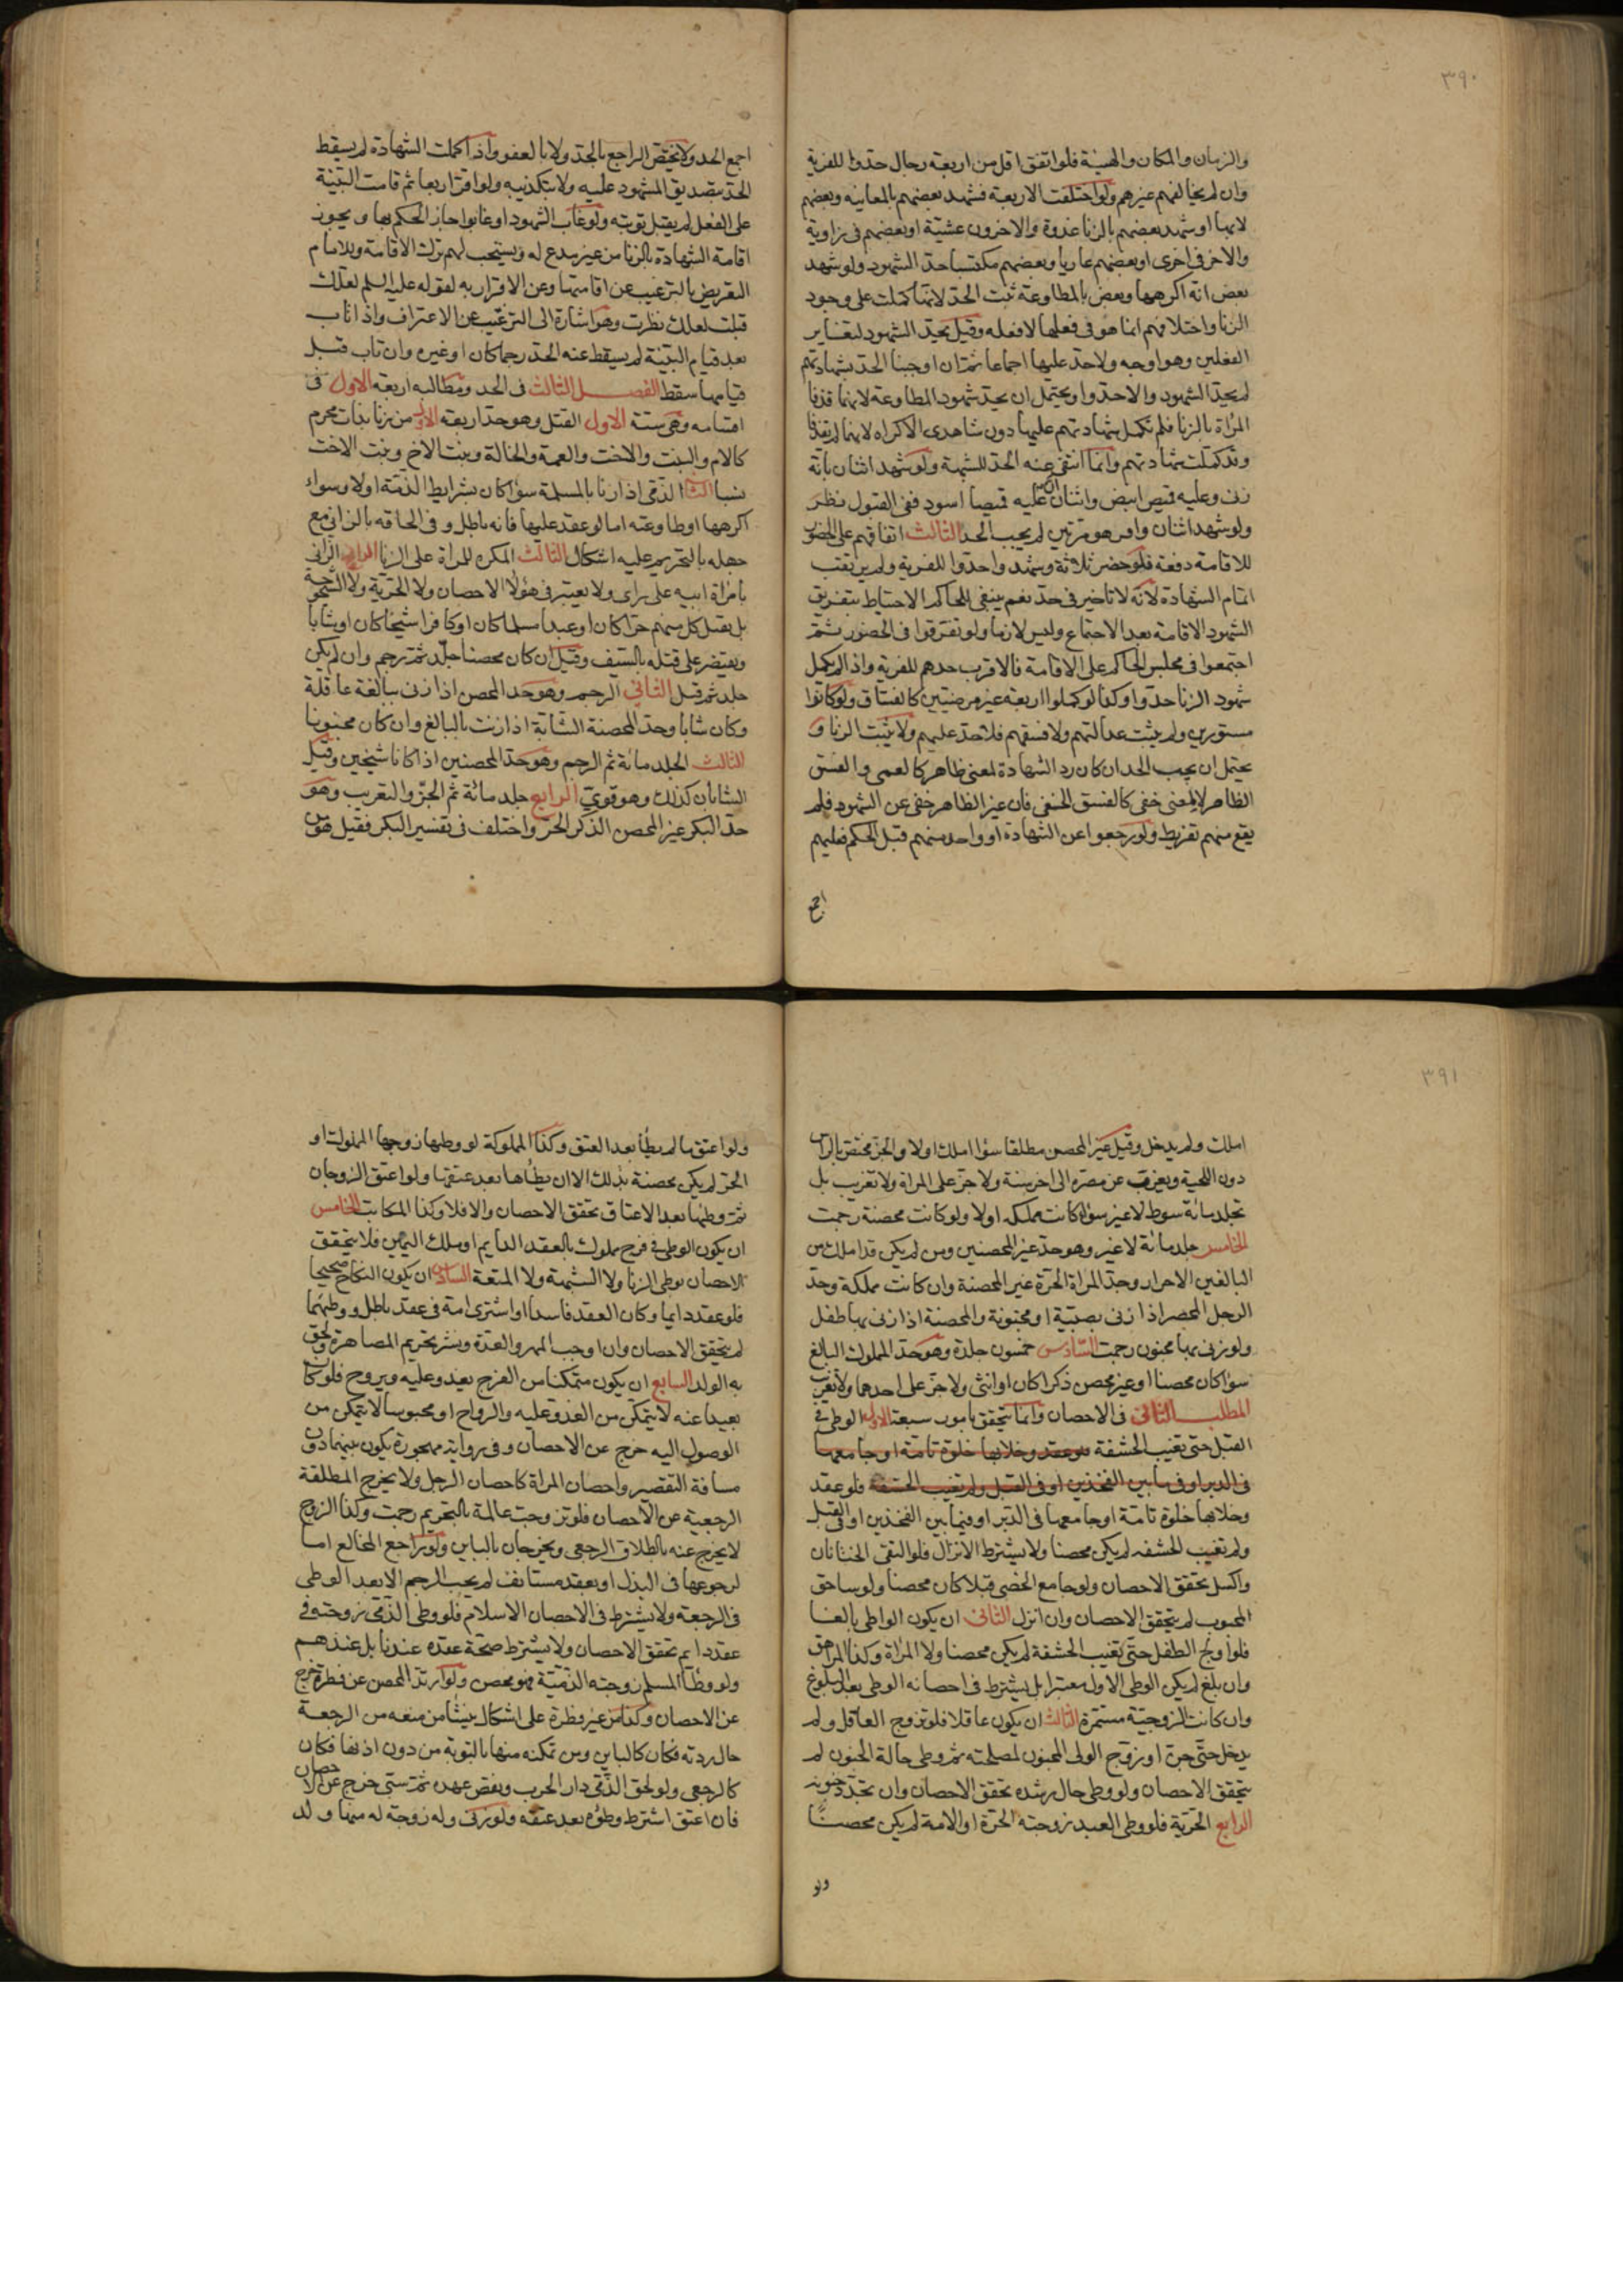 ٣٩٠
والزمان والمكان والهيئة فلو اتفق اقل من اربعة رجال حدوا للفرية
وان لم يخالفهم غيرهم ولو اختلفت الاربعة فشهد بعضهم بالمعاينه وبعضهم
لا بها او شهد بعضهم بالزنا غدوة والاخرون عشيّة او بعضهم فى زاوية
والاخر فى اخرى او بعضهم عاريا وبعضهم مكتسيا حدّ الشهود ولو شهد
بعض انه اكرهها وبعض بالمطاوعة ثبت الحدّ لانها كملت على وجود
الزنا واختلافهم انما هو فى فعلها لا فعله وقيل يحدّ الشهود لتغاير
الفعلين وهو اوجه ولا حدّ عليها اجماعا ثم ان اوجبنا الحدّ بشهادتهم
لم يحدّ الشهود والا حدّوا ويحتمل ان يحدّ شهود المطاوعة لانهما قذفا
المراة بالزنا فلم تكمل شهادتهم عليها دون شاهدى الاكراه لانهما لم يقذفا
وقد كملت شهادتهم وانما انتفى عنه الحدّ للشبهة ولو شهد اثنان بانّه
زنى وعليه قميص ابيض واثنان ان عليه قميصا اسود ففى القبول نظر
ولو شهد اثنان واقر هو مرتين لم يجب الحدّ الثالث اتفاقهم على الحضور
للاقامة دفعة فلو حضر ثلاثة وشهدوا حدّوا للفرية ولم يرتقب
اتمام الشهادة لانه لا تاخير فى حدّ نعم ينبغى للحاكم الاحتياط بتفريق
الشهود الاقامة بعد الاجتماع وليس لازما ولو تفرقوا فى الحضور ثم
اجتمعوا فى مجلس الحاكم على الاقامة فالاقرب حدهم للفرية واذا لم يكمل
شهود الزنا حدّوا وكذا لو كملوا اربعة غير مرضيّين كالفساق ولو كانوا
مستورين ولم يثبت عدالتهم ولا فسقهم فلا حدّ عليهم ولا يثبت الزنا و
يحتمل ان يجب الحد ان كان رد الشهادة لمعنى ظاهر كالعمى والفسق
الظاهر لا لمعنى خفى كالفسق الخفى فان غير الظاهر خفى عن الشهود فلم
يقع منهم تفريط ولو رجعوا عن الشهادة او واحد منهم قبل الحكم فعليهم
اجمع
اجمع الحد ولا يختصّ الراجع بالحدّ ولا بالعفو واذا كملت الشهادة لم يسقط
الحدّ بتصديق المشهود عليه ولا بتكذيبه ولو اقرّ اربعا ثم قامت البيّنة
على الفعل لم يقبل توبته ولو غاب الشهود او غابوا جاز الحكم بها ويجوز
اقامة الشهادة بالزنا من غير مدع له ويستحب لهم ترك الاقامة وللامام
التعريض بالترغيب عن اقامتها وعن الاقرار به لقوله عليه السلم لعلك
قبلت لعلك نظرت وهو اشارة الى الترغيب عن الاعتراف واذا تاب
بعد قيام البيّنة لم يسقط عنه الحدّ رجما كان او غيره وان تاب قبل
قيامها سقط الفصل الثالث فى الحد ومطالبه اربعة الاول فى
اقسامه وهى ستة الاول القتل وهو حدّ اربعة الاول من زنا بذات محرم
كالام والبنت والاخت والعمة والخالة وبنت الاخ وبنت الاخت
نسبا الثانى الذمّى اذا زنا بالمسلمة سواء كان بشرايط الذمّة اولا وسواء
اكرهها او طاوعته اما لو عقد عليها فانه باطل وفى الحاقه بالزانى مع
جهله بالتحريم عليه اشكال الثالث المكره للمراة على الزنا الرابع الزانى
بامراة ابيه على راى ولا يعتبر فى هؤلاء الاحصان ولا الحرّية ولا الشيخوخة
بل يقتل كل منهم حرّا كان او عبدا مسلما كان او كافرا شيخا كان او شابا
ويقتصر على قتله بالسّيف وقيل ان كان محصنا جلّد ثم رجم وان لم يكن
جلد ثم قتل الثانى الرجم وهو حد المحصن اذا زنى ببالغة عاقلة
وكان شابا وحدّ المحصنة الشابّة اذا زنت بالبالغ وان كان مجنونا
الثالث الجلد مائة ثم الرجم وهو حدّ المحصنين اذا كانا شيخين وقيل
الشابان كذلك وهو قوىّ الرابع جلد مائة ثم الجزّ والتغريب وهو
حدّ البكر غير المحصن الذكر الحرّ واختلف فى تفسير البكر فقيل هو من
٣٩١
املك ولم يدخل وقيل غير المحصن مطلقا سواء املك اولا والجزّ مختص بالراس
دون اللحية ويغرّب عن مصره الى اخر سنة ولا جزّ على المراة ولا تغريب بل
تجلد مائة سوط لا غير سواء كانت مملكه اولا ولو كانت محصنة رجمت
الخامس جلد مائة لا غير وهو حدّ غير المحصنين ومن لم يكن قد املك من
البالغين الاحرار وحدّ المراة الحرّة غير المحصنة وان كانت مملكة وحدّ
الرجل المحصن اذا زنى بصبيّة او مجنونة والمحصنة اذا زنى بها طفل
ولو زنى بها مجنون رجمت السّادس خمسون جلدة وهو حدّ المملوك البالغ
سواء كان محصنا او غير محصن ذكرا كان او انثى ولا جزّ على احدهما ولا تغريب
المطلب الثانى فى الاحصان وانما يتحقق بامور سبعة الاول الوطى فى
القبل حتى تغيب الحشفة فلو عقد وخلابها خلوة تامّة او جامعها
فى الدبر او فى ما بين الفخذين او فى القبل ولم تغيب الحشفة فلو عقد
وخلابها خلوة تامّة او جامعها فى الدّبر او فيما بين الفخذين او فى القبل
ولم تغيب الحشفه لم يكن محصنا ولا يشترط الانزال فلو التقى الختانان
واكسل تحقق الاحصان ولو جامع الخصى قبلا كان محصنا ولو ساحق
المجبوب لم يتحقق الاحصان وان انزل الثانى ان يكون الواطى بالغا
فلو اولج الطفل حتّى تغيب الحشفة لم يكن محصنا ولا المراة وكذا المراهق
وان بلغ لم يكن الوطى الاول معتبرا بل يشترط فى احصانه الوطى بعد البلوغ
وان كانت الزوجيّة مستمرّة الثالث ان يكون عاقلا فلو تزوج العاقل ولم
يدخل حتّى جنّ او زوّج الولى المجنون لمصلحته ثم وطى حالة الجنون لم
يتحقق الاحصان ولو وطى حال رشده تحقق الاحصان وان تجدّد جنونه
الرابع الحرّية فلو وطى العبد زوجته الحرّة او الامة لم يكن محصنًا
ولو
ولو اعتق ما لم يطأ بعد العتق وكذا المملوكة لو وطئها زوجها المملوك او
الحرّ لم يكن محصنة بذلك الا ان يطأها بعد عتقها ولو اعتق الزوجان
ثم وطئها بعد الاعتاق تحقق الاحصان والا فلا وكذا المكاتب الخامس
ان يكون الوطى فى فرج مملوك بالعقد الدايم او ملك اليمين فلا يتحقق
الاحصان بوطى الزنا ولا الشبهة ولا المتعة السادس ان يكون النكاح صحيحا
فلو عقد دايما وكان العقد فاسدا او اشترى امة فى عقد باطل ووطئها
لم يتحقق الاحصان وان اوجب المهر والعدّة ونشر تحريم المصاهرة ولحق
به الولد السابع ان يكون متمكنا من الفرج يغدو عليه ويروح فلو كان
بعيدا عنه لا يتمكن من الغدو عليه والرواح او محبوسا لا يتمكن من
الوصول اليه خرج عن الاحصان وفى رواية مهجورة يكون بينهما دون
مسافة التقصير واحصان المراة كاحصان الرجل ولا يخرج المطلقة
الرجعية عن الاحصان فلو تزوجت عالمة بالتحريم رجمت وكذا الزوج
لا يخرج عنه بالطلاق الرجعى ويخرجان بالباين ولو راجع المخالع اما
لرجوعها فى البذل او بعقد مستانف لم يجب الرجم الا بعد الوطى
فى الرجعة ولا يشترط فى الاحصان الاسلام فلو وطى الذمّى زوجته فى
عقد دايم تحقق الاحصان ولا يشترط صحّة عقده عندنا بل عندهم
ولو وطأ المسلم زوجته الذمّيّة فهو محصن ولو ارتدّ المحصن عن فطرة خرج
عن الاحصان وكذا من غير فطرة على اشكال ينشأ من منعه من الرجعة
حال ردته فكان كالباين ومن تمكنه منها بالتوبة من دون اذنها فكان
كالرجعى ولو لحق الذّمّى دار الحرب ونقض عهده ثم سبى خرج عن الاحصان
فان اعتق اشترط وطؤه بعد عتقه ولو زنى وله زوجة له منها ولد